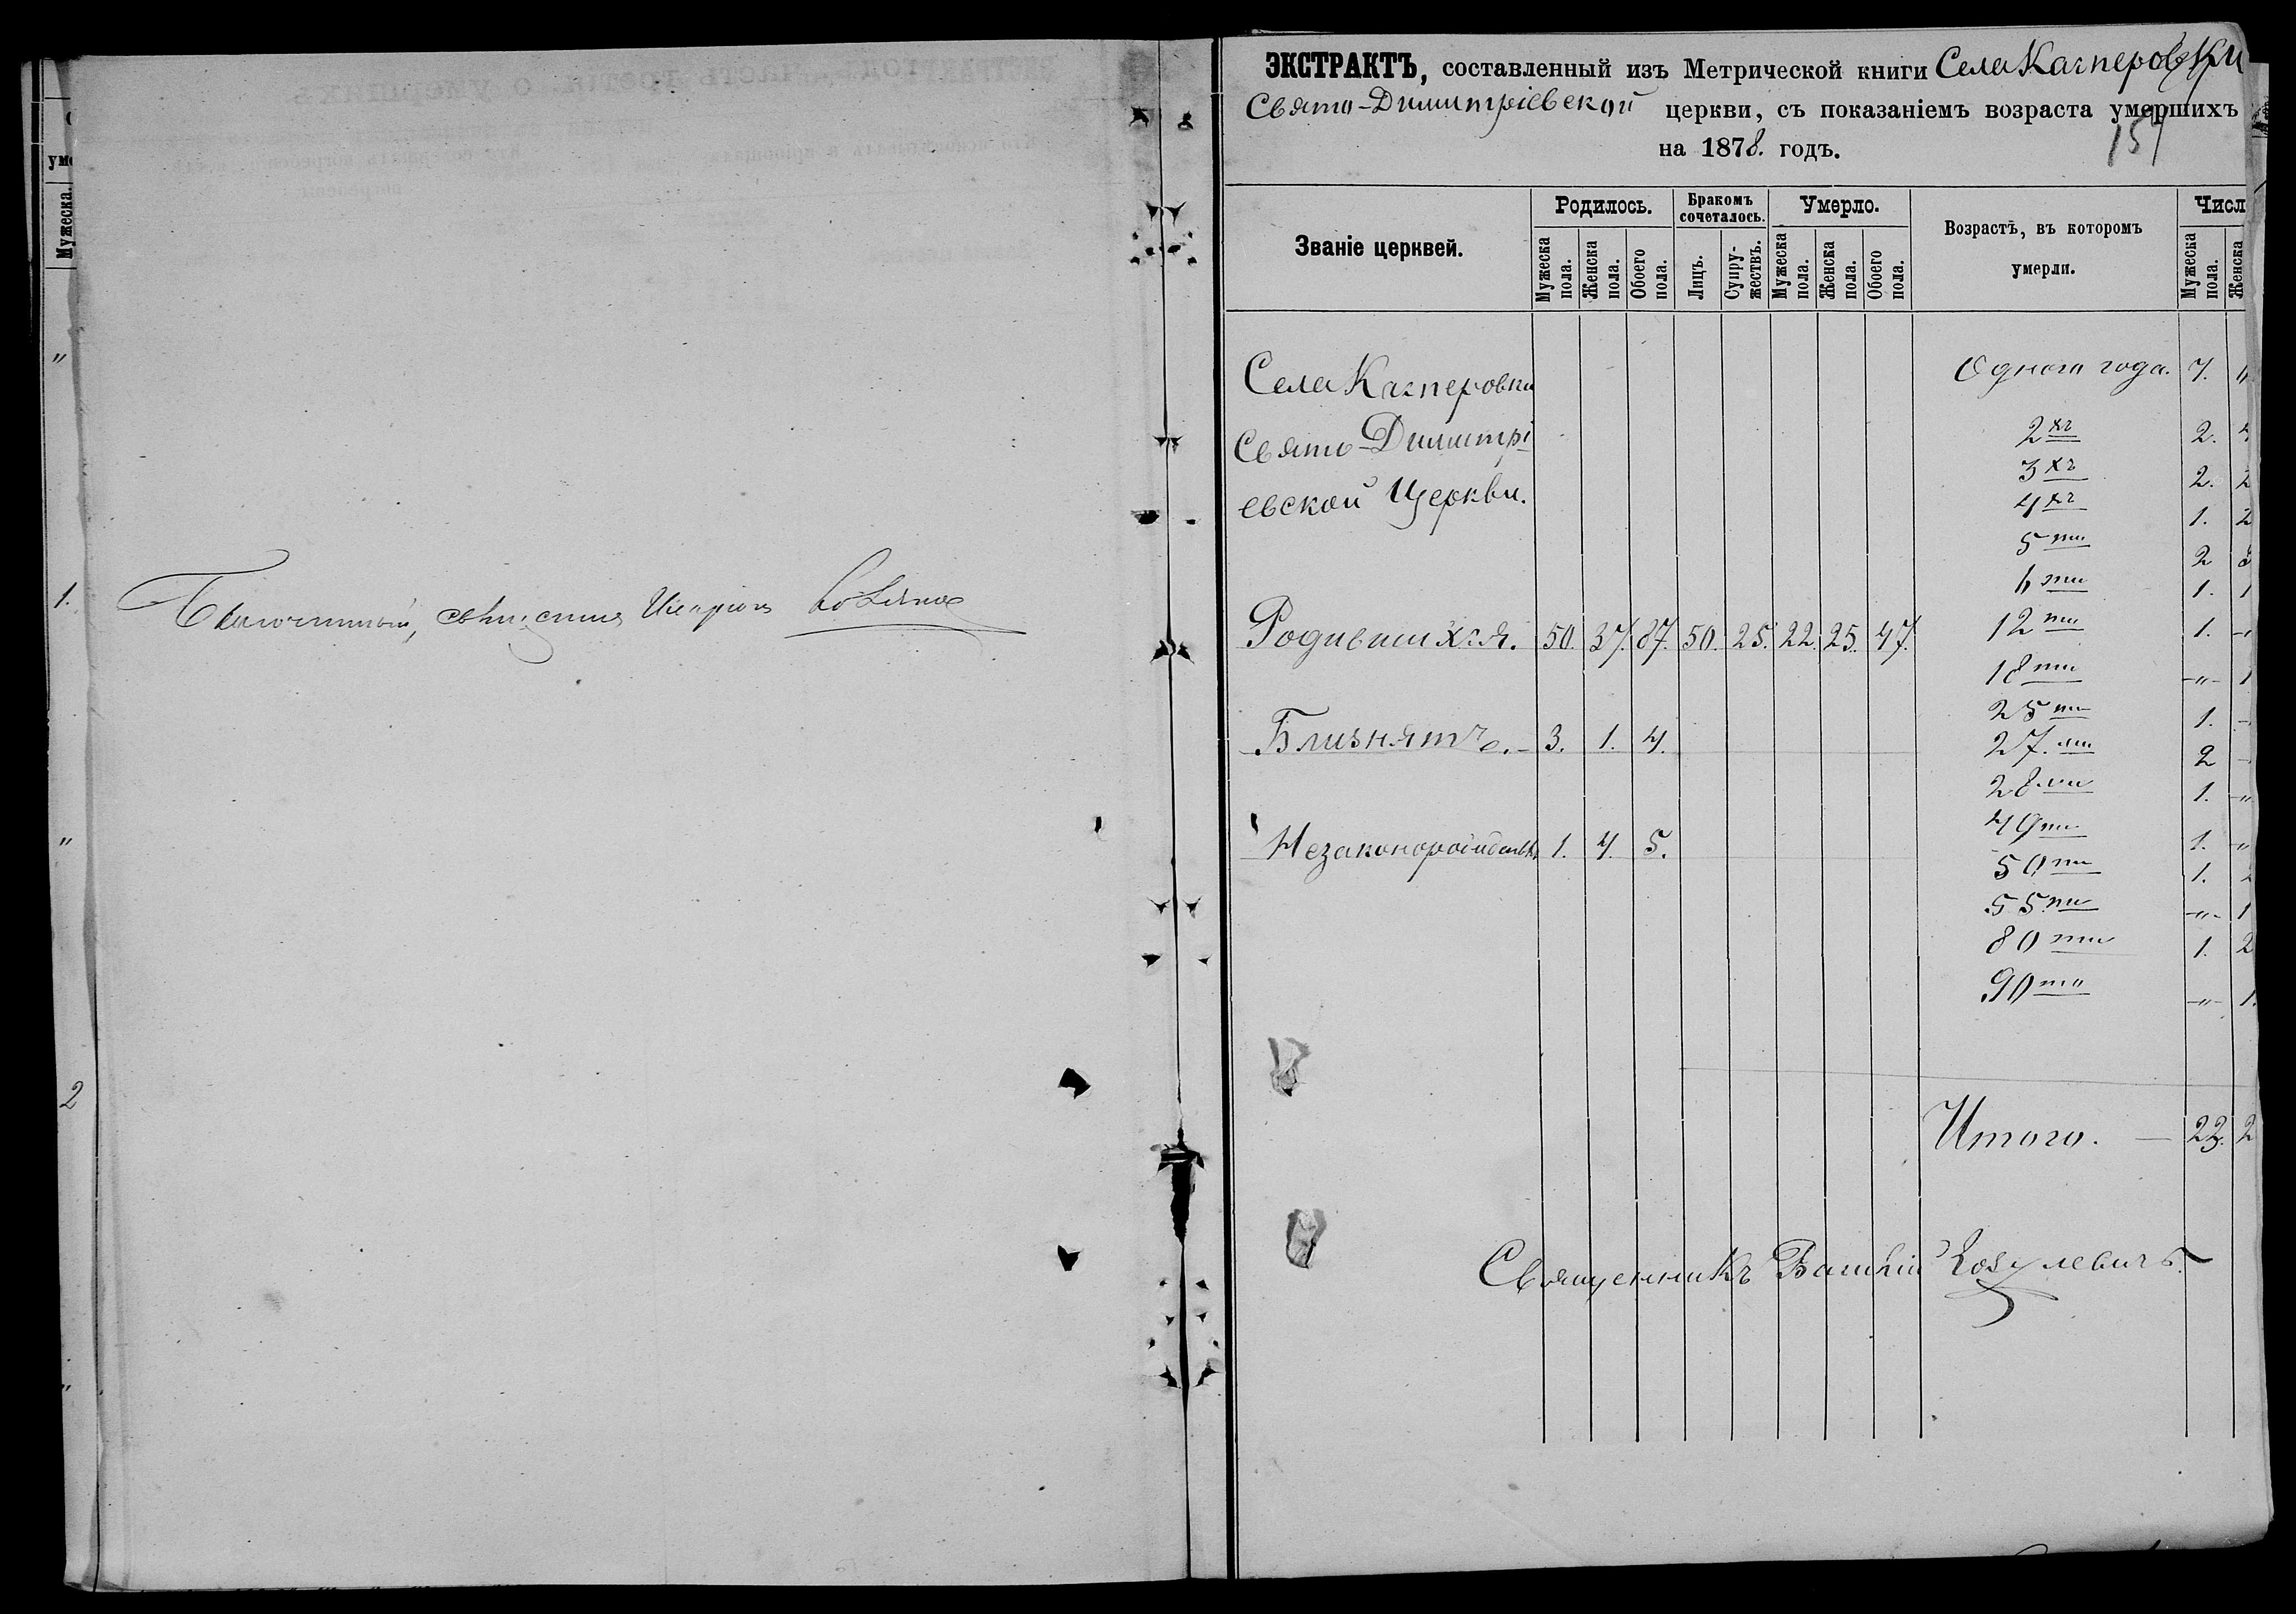 уме
Мужеска
"
1.
"
2
"
Благочинный, священникъ
ЭКСТРАКТЪ, составленный изъ Метрической книги Села Качперовки
Свято-Димитріевской церкви, съ показаніемъ возраста умершихъ
на 1878. годъ.
157
Званіе церквей. Родилось. Бракомъ сочеталось. Умерло. Возрастъ, въ которомъ умерли. Числ
Мужеска пола. Женска пола. Обоего пола. Лицъ. Супружествъ. Мужеска пола. Женска пола. Обоего пола. Мужеска пола. Женска
Села Качперовки
Свято Димитрі
евской Церкви.
Родившихся. 50. 37. 87. 50. 25. 22. 25. 47.
Близнятъ. - 3. 1. 4.
Незаконорожден 1. 4. 5.
Одного года. 7.
2хъ 2. 4
3хъ 2. 2
4хъ 1. 2
5ти 2 3
6ти 1. 1
12ти 1. -
18ти -"- 1
25ти 1. -
27ми 2 -
28ми 1. -"
49ти 1. "
50ти 1. 2
55ти -"- 1
80ти 1. 2
90та -"- 1.
Итого. — 22. 2
Священникъ Василій Козулевичъ.